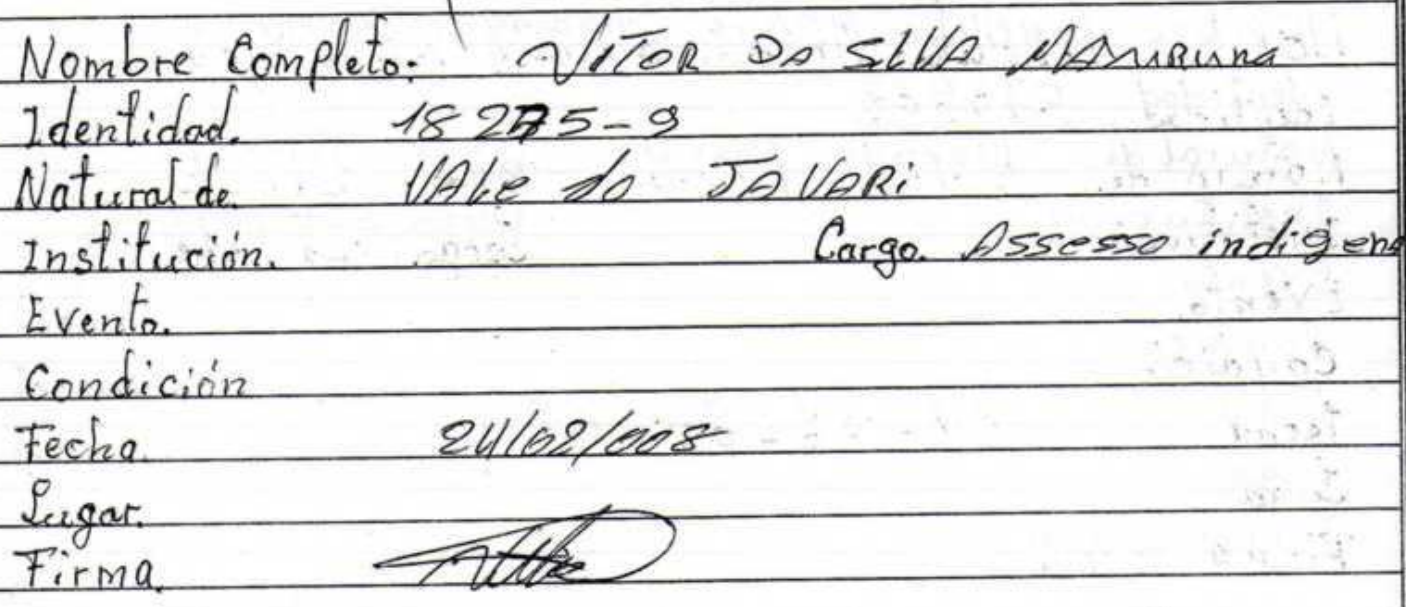 Nombre Completo. VITOR DA SILVA MAYURUNA
Identidad. 18275-9
Natural de. VALe do JAVARi
Institución. Cargo. Assesso indigena
Evento.
Condición
Fecha. 24/02/008
Lugar.
Firma.